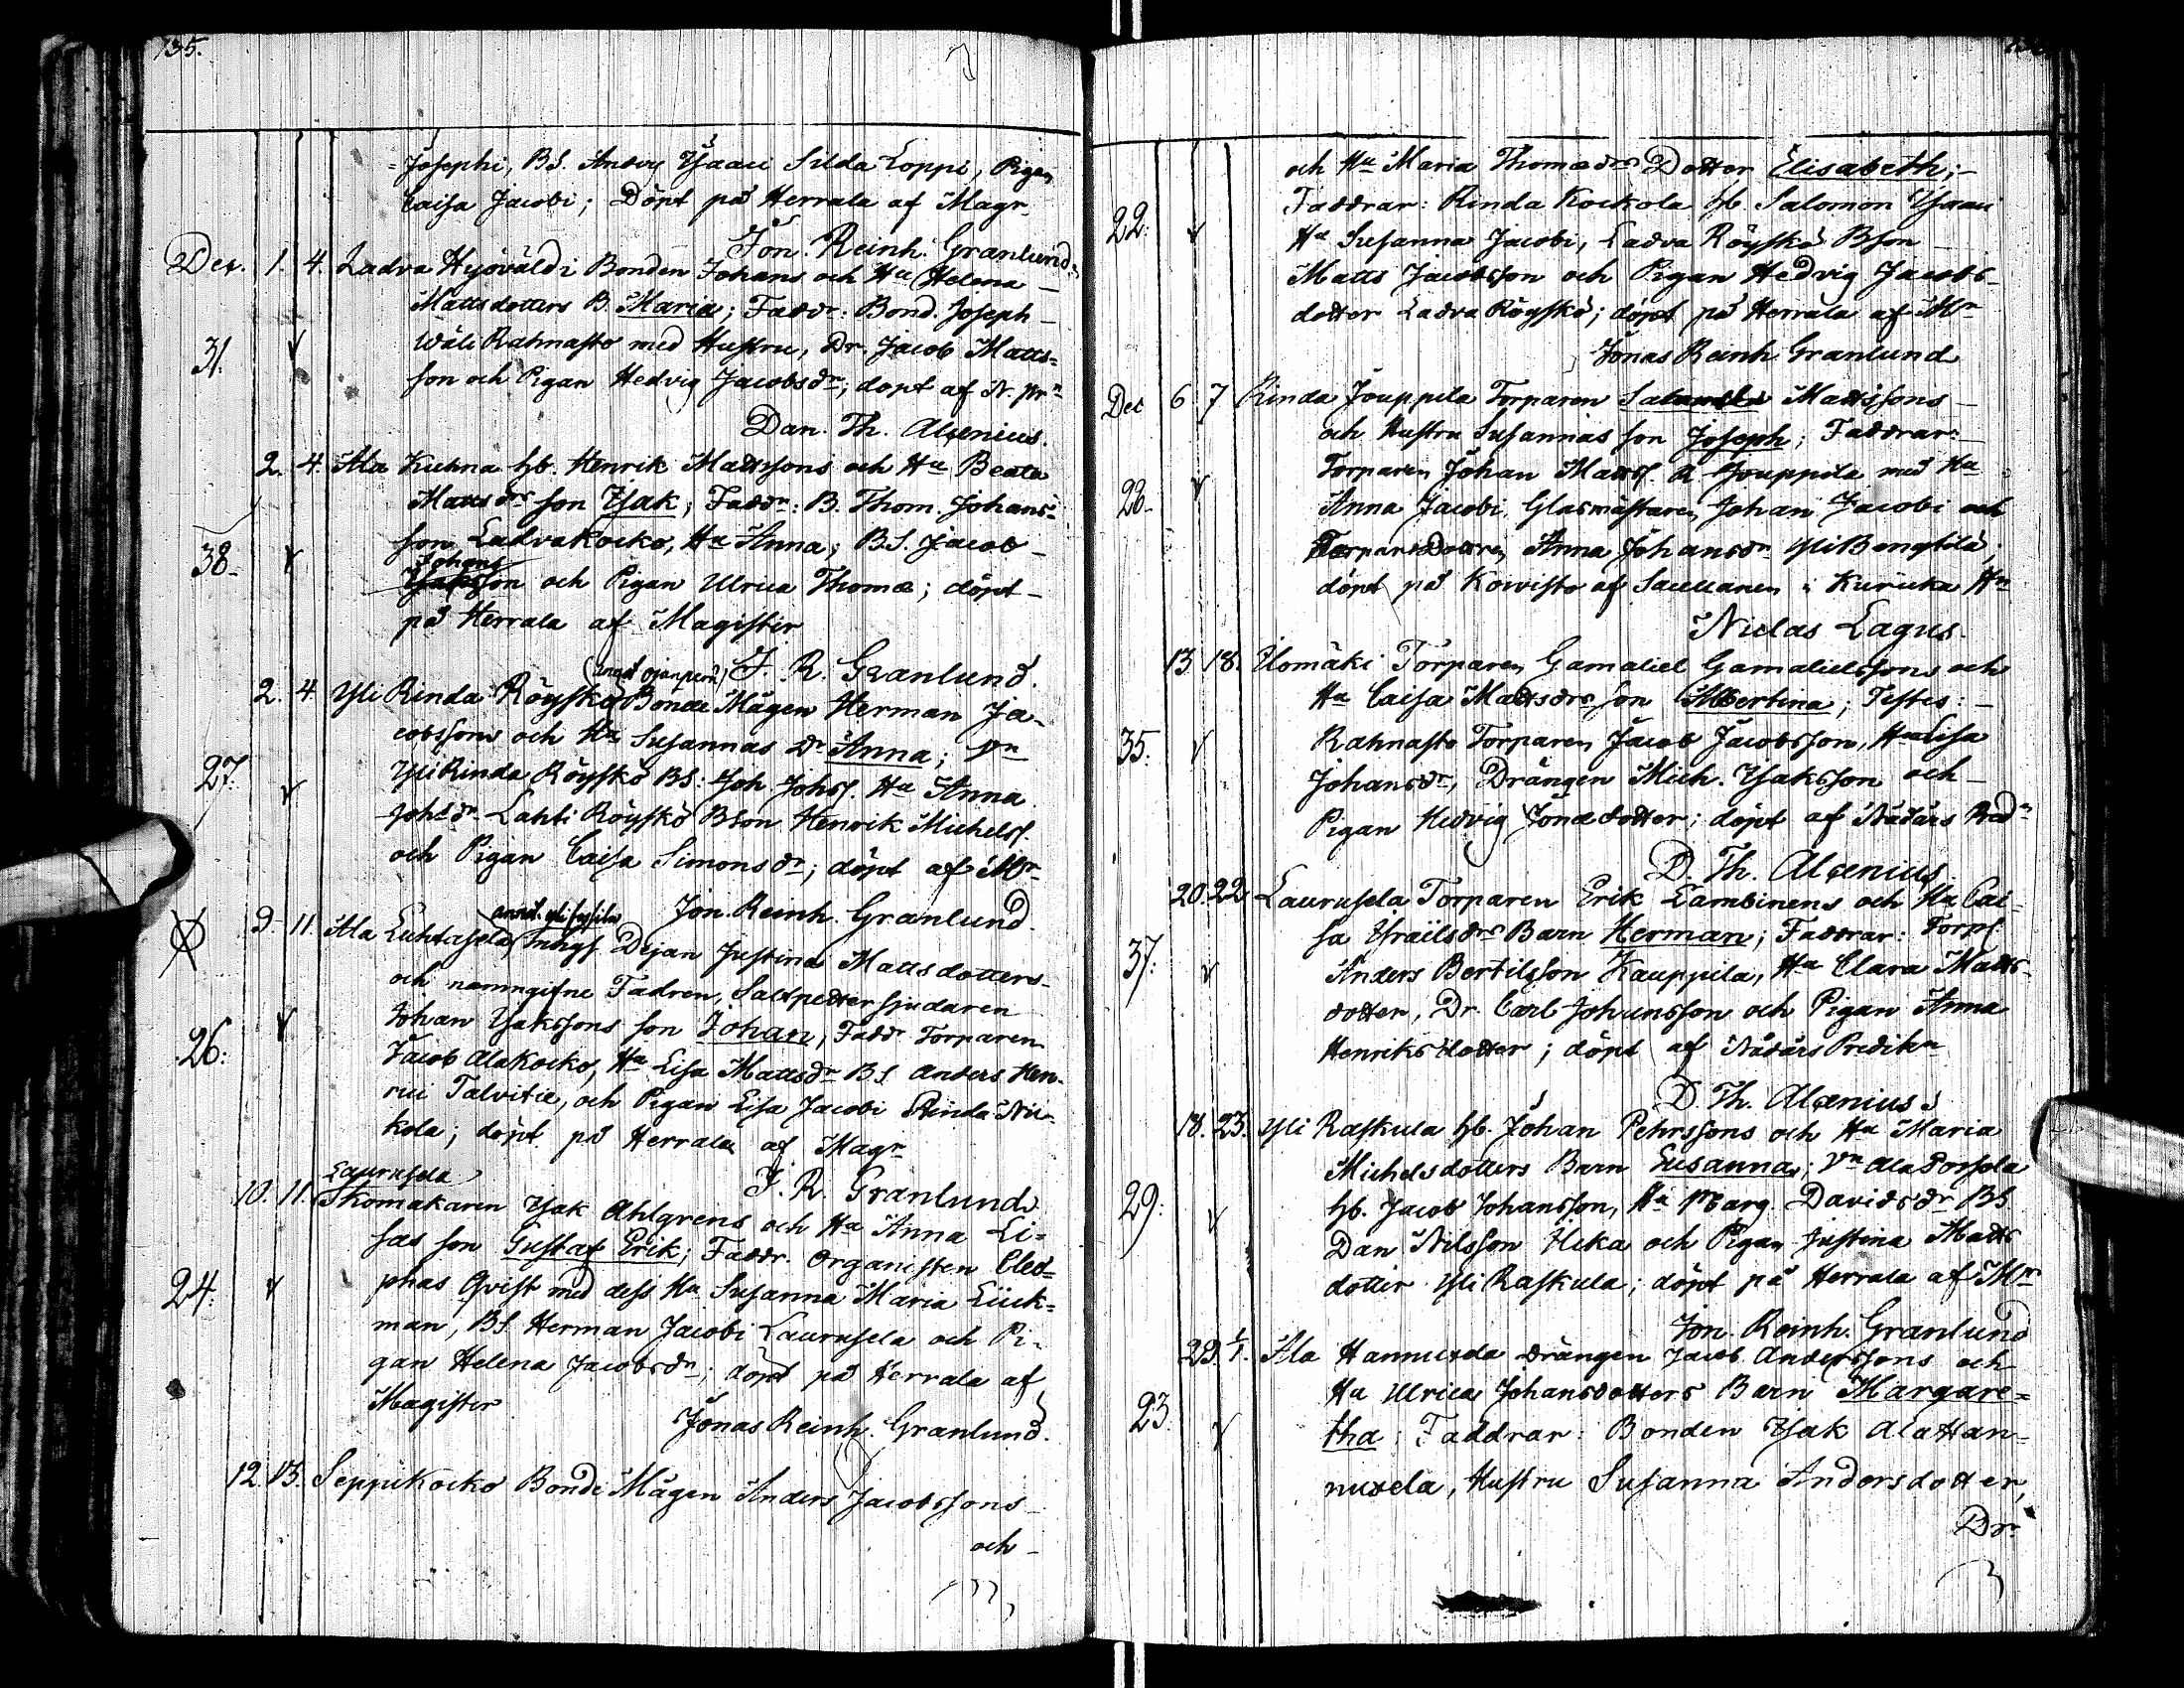 135.
Josephi, BS. Andreas Isaaci Silda Loppi, Pigan
Caisa Jacobi; Döpt på Herrala af Magr
Jon. Reinh. Granlund.
Dec. 1. 4. Ladva Hyöväldi Bonden Johans och Hu Helena
Mattsdotters B. Maria; Faddr: Bond. Joseph
31. Wäli Rahnasto med Hustru, Dr. Jacob Matts-
son och Pigan Hedvig Jacobsdr; döpt af N. Pr
Dan. Th. Alcenius.
2. 4. Ala Kuhna hb. Henrik Mattssons och Hu Beata
Mattsdrs son Isak; Faddr: B. Thom. Johans-
son Ladvakocko, Hu Anna; BS. Jacob
Johans
38. Isaksson och Pigan Ulrica Thomæ; döpt
på Herrala af Magister
J. R. Granlund.
2. 4. Yli Rinda Röyskö Bonde Mågen Herman Ja-
cobssons och Hu Susannas Dr Anna; Vn
27. Yli Rinda Röyskö BS: Joh Johss. Hu Anna
Johsdr Lahti Röyskö BSon Henrik Michelss.
och Pigan Caisa Simonsdr; döpt af Mr
Jon. Reinh. Granlund.
9. 11. Ala Luhtasela Inhys Dejan Justina Mattsdotters
och namngifne Fadren, Saltpettersjudaren
26. Johan Isakssons son Johan, Faddr Torparen
Jacob Alakocko, Hu Lisa Mattsdr BS Anders Hen-
rici Talvitie, och Pigan Lisa Jacobi Rinda Nii-
kola; döpt på Herrala af Magr
J. R. Granlund
Laurusela
10. 11. Skomakaren Isak Ahlgrens och Hu Anna Li-
sas son Gustaf Erik; Faddr. Organisten Cleo-
24. phas Qvist med dess Hu Susanna Maria Lück-
man, BS. Herman Jacobi Laurusela och Pi-
gan Helena Jacobsdr; döpt på Herrala af
Magister
Jonas Reinh. Granlund.
12. 13. Seppikocko Bonde Mågen Anders Jacobssons
och
och Hu Maria Thomædrs Dotter Elisabeth;
Faddrar: Rinda Kockola hb. Salomon Isaaci
22. Hu Susanna Jacobi, Ladva Röyskö BSon
Matts Jacobsson och Pigan Hedvig Jacobs-
dotter Ladva Röyskö; döpt på Herrala af Mr
Jonas Reinh Granlund
Dec 6. 7 Rinda Jouppila Torparen Mattssons
och Hustru Susannas son Joseph; Faddrar:
Torparen Johan Mattss. R. Jouppila med Hu
28. Anna Jacobi, Glasmästaren Johan Jacobi och
Torparedottren Anna Johansdr Yli Bengtilä;
döpt på Koivisto af Sacellanen i Kuricka Hr
Niclas Lagus.
13 18. Ilomäki Torparen Gamaliel Gamalielssons och
Hu Caisa Mattsdrs son Albertina; Testes:
35. Rahnasto Torparen Jacob Jacobsson, Hu Lisa
Johansdr, Drängen Mich. Isaksson och
Pigan Hedvig Jonædotter; döpt af Nådårs Pred
D. Th. Alcenius.
20. 22 Laurusela Torparen Erik Lambinens och Hu Cai-
sa Israilsdrs Barn Herman; Faddrar: Torps
37. Anders Bertilsson Kauppila, Hu Clara Matts-
dotter, Dr. Carl Johansson och Pigan Anna
Henriksdotter; döpt af Nådårs Predikn
D. Th. Alcenius
18. 23. Yli Raskula hb. Johan Pehrssons och Hu Maria
Michelsdotters Barn Susanna; Vn Ala Porsola
29. hb. Jacob Johansson, Hu Marg. Davidsdr BS
Dan Nilsson Ucka och Pigan Justina Matts
dotter Yli Raskula; döpt på Herrala af Mr
Jon. Reinh. Granlund
Ala Hannuxela drängen Jacob Anderssons och
23. Hu Ulrica Johansdotters Barn Margare-
tha; Faddrar: Bonden Isak Ala Han-
nuxela, Hustru Susanna Andersdotter,
Dr.